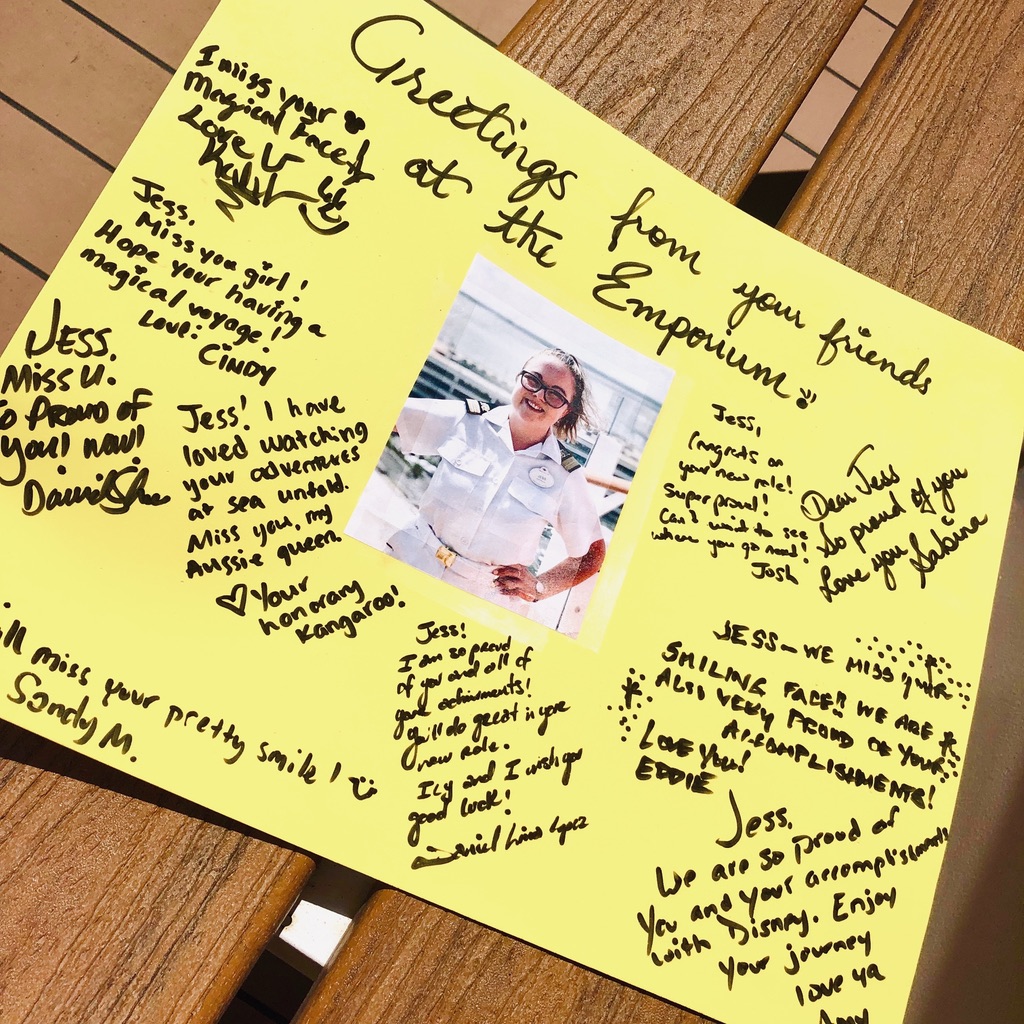 Greetings from your friends
at the Emporium!
I miss your
Magical Face!
Love U
Jess,
Miss you girl!
Hope your having a
magical voyage!
Love:
CINDY
JESS,
Miss U.
So PROUD OF
you! now!
Jess! I have
loved watching
your adventures
at sea unfold.
Miss you, my
Aussie queen
♡ Your
honorary
Kangaroo!
will miss your pretty smile!
Sandy M.
Jess!
I am so proud
of you and all of
your achivments!
You'll do great in your
new role.
ILY and I wish you
good luck!
Daniel
Jess,
Congrats on
your new role!
Super proud!
Can't wait to see
where you go next!
Josh
Dear Jess
So proud of you
Love you Sabina
JESS—WE MISS YOUR
SMILING FACE!! WE ARE
ALSO VERY PROUD OF YOUR
ACCOMPLISHMENTS!
LOVE YOU!
EDDIE
Jess,
We are so proud of
you and your accomplishments
with Disney. Enjoy
your journey
love ya
Amy